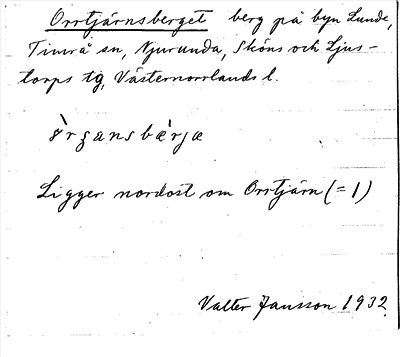 Orrtjärnsberget berg på byn Lunde,
Timrå sn, Njurunda, Sköns och Ljus-
torps tg, Västernorrlands l.
Ligger nordost om Orrtjärn (= 1)
Valter Jansson 1932